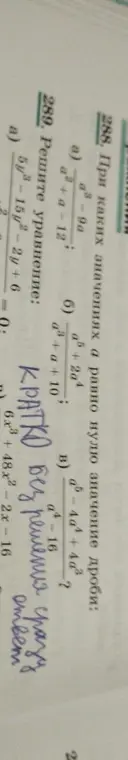 288. При каких значениях а равно нулю значение дроби:
а) (a³ − 9a)/(a² + a − 12); б) (a⁵ + 2a⁴)/(a³ + a + 10); в) (a⁵ − 4a⁴ + 4a³)/(a⁴ − 16)?
289. Решите уравнение:
а) 5y³ − 15y² − 2y + 6 = 0; 6x³ + 48x² − 2x − 16
КРАТКО без решения сразу ответ